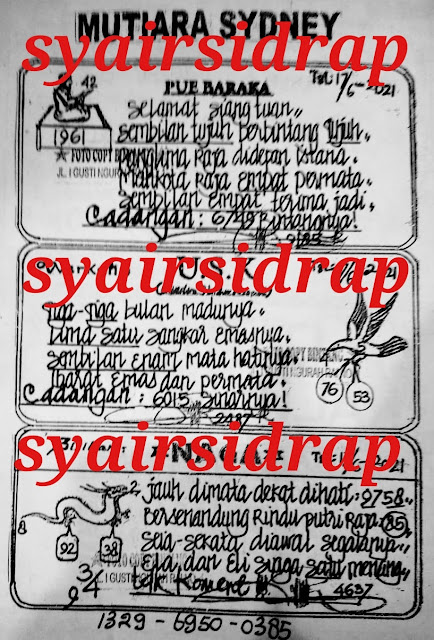 MUTIARA SYDNEY
syairsidrap
42
PUE BARAKA
Tgl: 17/6-2021
1961
Selamat siang tuan
sembilan tujuh berbintang tujuh
FOTO COPY
Panglima Raja didepan istana
JL. I GUSTI NGURAH
Mahkota Raja empat permata
Sembilan empat terima jadi
Cadangan : 6749 Bintangnya!
syairsidrap
U.S.K
2021
Tiga-tiga bulan madunya
Lima satu sangkar emasnya
FOTO COPY
Sembilan enam mata hatinya
GUSTI NGURAH
Ibarat emas dan permata
Cadangan : 6015 Sinarnya!
2487
76
53
syairsidrap
2021
2
jauh dimata dekat dihati : 9758
Bersenandung Rindu putri Raja 85
8
Seia-sekata diawal segalanya
92
38
FOTO COPY
Ela dan Eli siaga satu
I GUSTI NGURAH
3
4
9
4637
1329-6950-0385